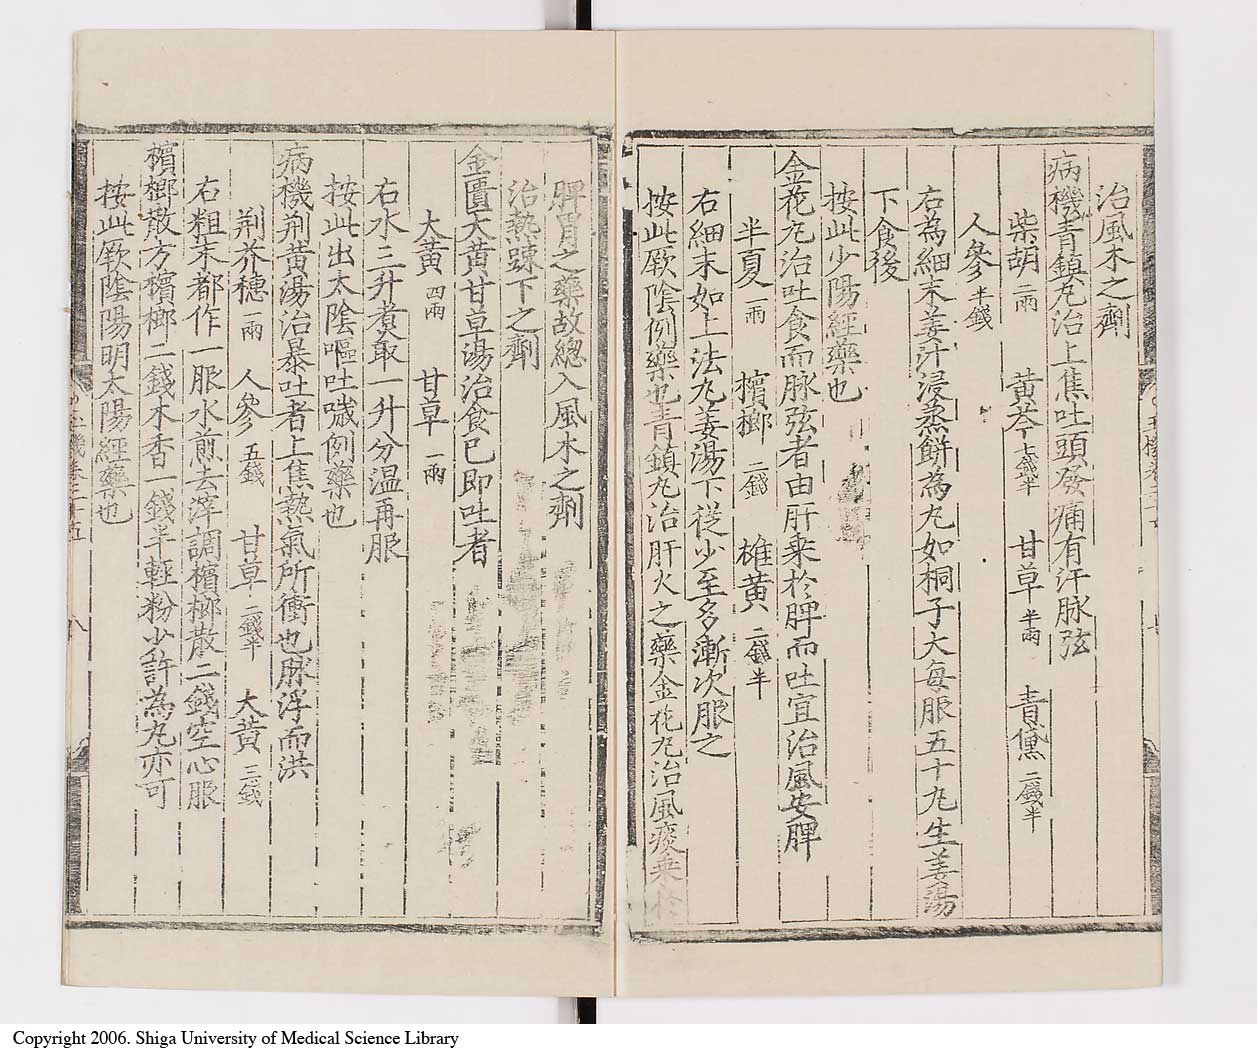 治風木之劑
病機青鎮丸治上焦吐頭發痛有汗脉弦
柴胡 二兩 黃芩 七錢半 甘草 半兩 青黛 二錢半
人參 半錢
右為細末姜汁浸蒸餅為丸如桐子大每服五十丸生姜湯
下食後
按此少陽經藥也
金花丸治吐食而脉弦者由肝乘於脾而吐宜治風安脾
半夏 一兩 檳榔 二錢 雄黃 二錢半
右細末如上法丸姜湯下從少至多漸次服之
按此厥陰例藥也青鎮丸治肝火之藥金花丸治風痰乘於
脾胃之藥故總入風木之劑
治熱踈下之劑
金匱大黃甘草湯治食已即吐者
大黃 四兩 甘草 一兩
右水三升煮取一升分温再服
按此出太陰嘔吐噦例藥也
病機荆黃湯治暴吐者上焦熱氣所衝也脉浮而洪
荆芥穗 一兩 人參 五錢 甘草 二錢半 大黃 三錢
右粗末都作一服水煎去滓調檳榔散二錢空心服
檳榔散方檳榔二錢木香一錢半輕粉少許為丸亦可
按此厥陰陽明太陽經藥也
八
Copyright 2006. Shiga University of Medical Science Library